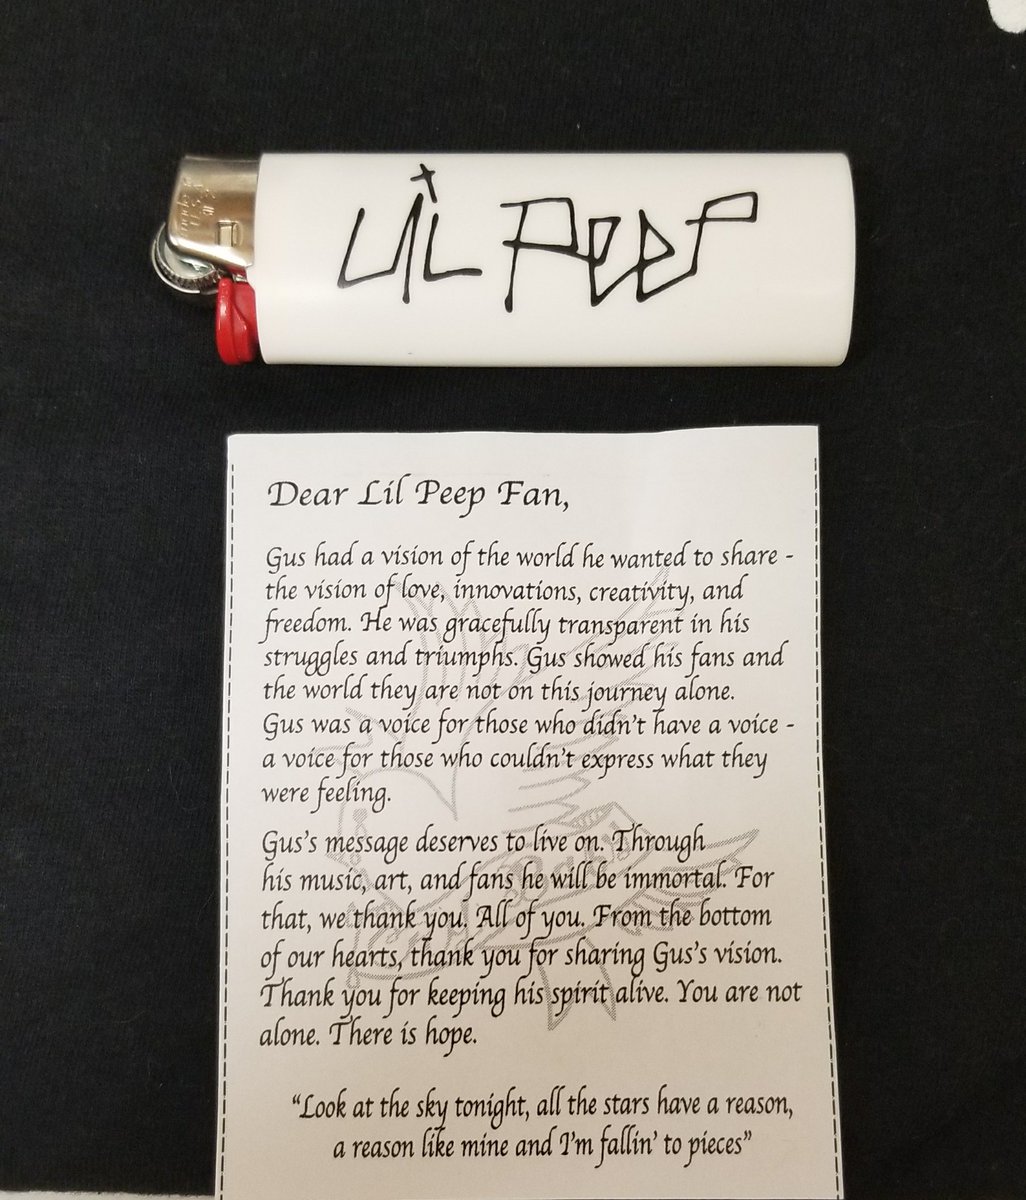 Lil Peep
Dear Lil Peep Fan,
Gus had a vision of the world he wanted to share -
the vision of love, innovations, creativity, and
freedom. He was gracefully transparent in his
struggles and triumphs. Gus showed his fans and
the world they are not on this journey alone.
Gus was a voice for those who didn't have a voice -
a voice for those who couldn't express what they
were feeling.
Gus's message deserves to live on. Through
his music, art, and fans he will be immortal. For
that, we thank you. All of you. From the bottom
of our hearts, thank you for sharing Gus's vision.
Thank you for keeping his spirit alive. You are not
alone. There is hope.
"Look at the sky tonight, all the stars have a reason,
a reason like mine and I'm fallin' to pieces"